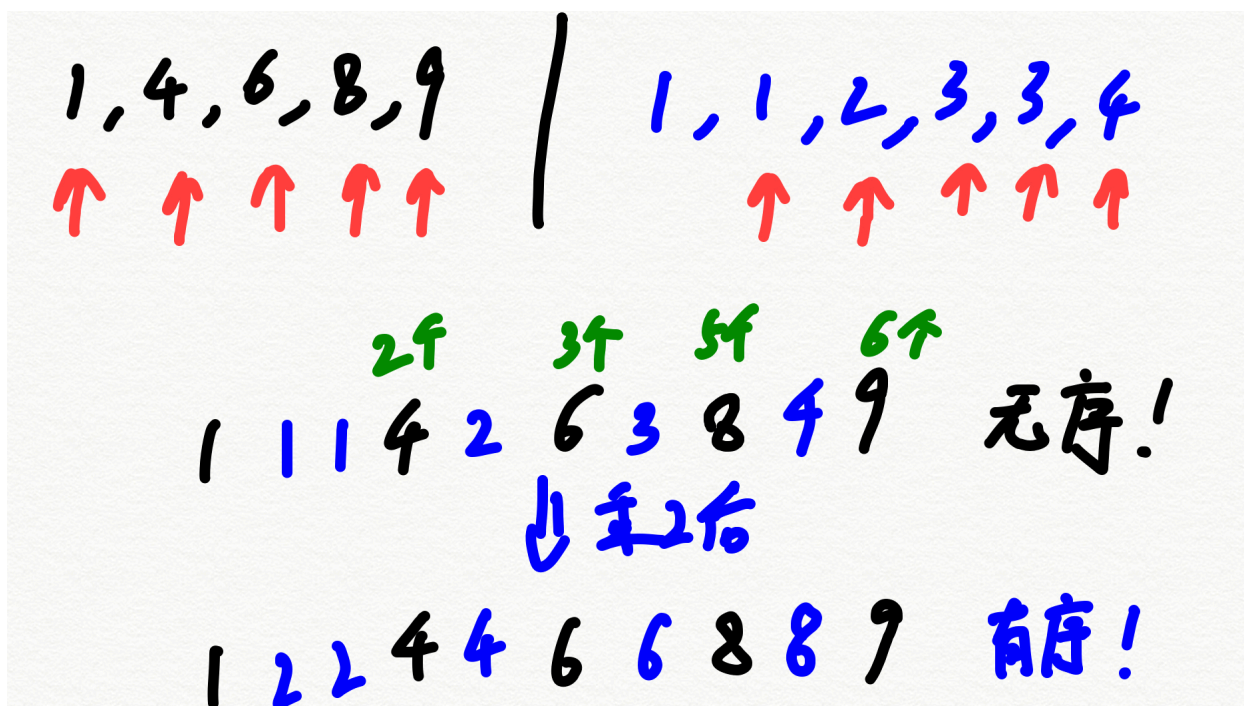 1,4,6,8,9 | 1,1,2,3,3,4
2个 3个 5个 6个
1 1 1 4 2 6 3 8 4 9 无序!
乘2后
1 2 2 4 4 6 6 8 8 9 有序!